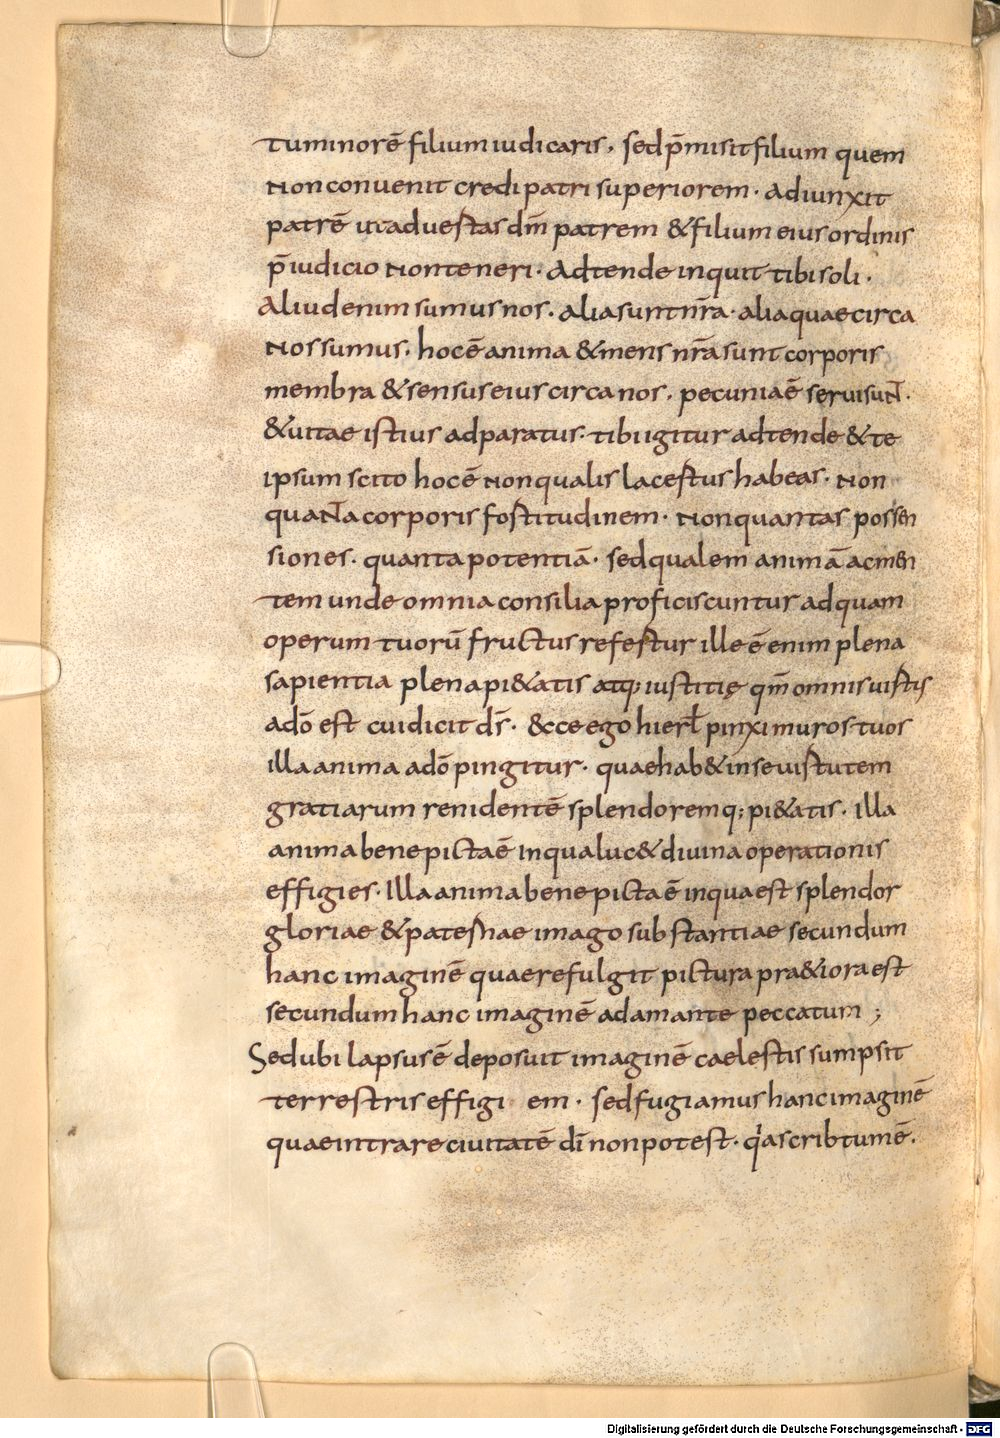 tuminorē filium iudicaris, sed p̄misit filium quem
non conuenit credi patri superiorem · adiunxit
patrē ut aduertas dm̄ patrem & filium eius ordinis
p̄iudicio non teneri · Adtende inquit tibi soli ·
Aliud enim sumus nos · alia sunt nr̄a · alia quae circa
nos sumus, hoc ē anima & mens nr̄a sunt corporis
membra & sensus eius circa nos, pecuniae ē seruisunt ·
& uitae istius adparatus · tibi igitur adtende & te
ipsum scito hoc ē non qualis lacertus habeas · non
quanta corporis fortitudinem · non quantas possen
siones · quanta potentiā · sed qualem animā ac men
tem unde omnia consilia proficiscuntur ad quam
operum tuorū fructus refertur ille ē enim plena
sapientia plena pi&atis atq; iustitię qm̄ omnis uirtis
a dō est cui dicit dn̄s · &cce ego hierl̄ pinxi muros tuos
illa anima a dō pingitur · quae hab& in se uirtutem
gratiarum renidentē splendoremq; pi&atis · Illa
anima bene picta ē in qua luc& diuina operationis
effigies · Illa anima bene picta ē in qua est splendor
gloriae & paternae imago substantiae secundum
hanc imaginē quae refulgit pictura pra&iora est
secundum hanc imaginē adam ante peccatum ;
Sed ubi lapsus ē deposuit imaginē caelestis sumpsit
terrestris effigi em · sed fugiamus hanc imaginē
quae intrare ciuitatē dī non potest · qia scribtum ē ·
Digitalisierung gefördert durch die Deutsche Forschungsgemeinschaft - DFG